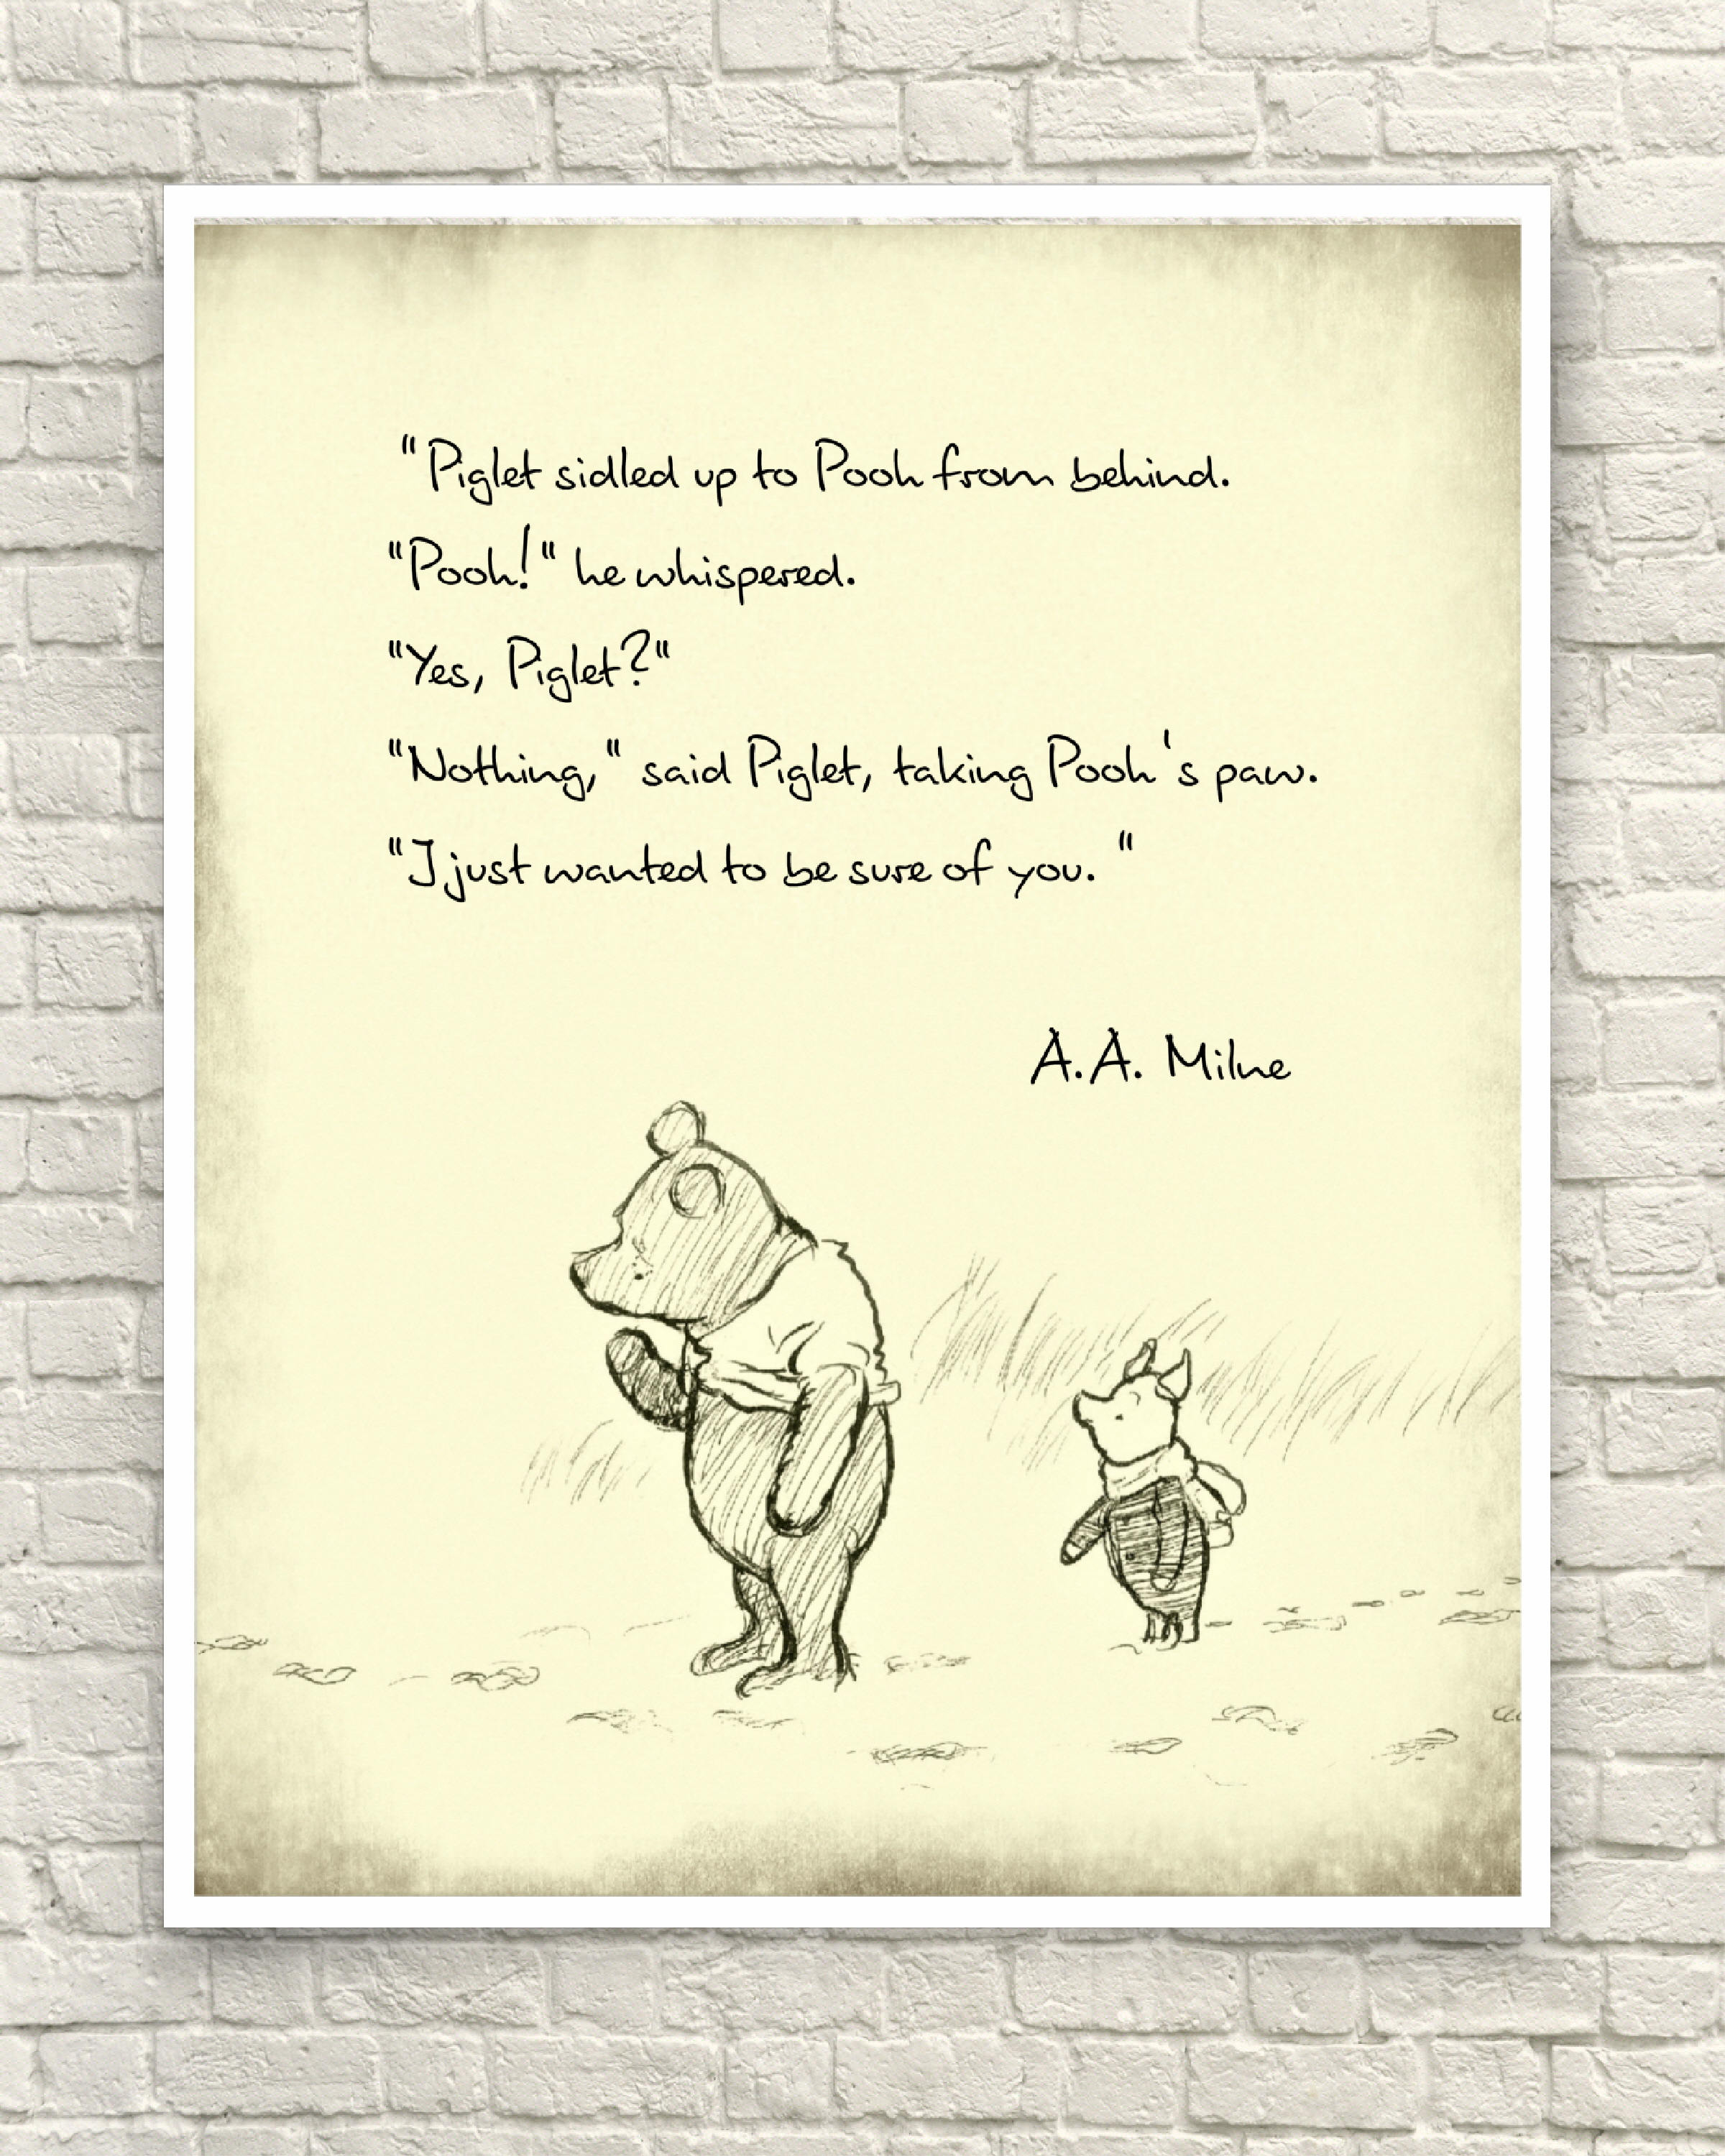 "Piglet sidled up to Pooh from behind.
"Pooh!" he whispered.
"Yes, Piglet?"
"Nothing," said Piglet, taking Pooh's paw.
"I just wanted to be sure of you."
A.A. Milne